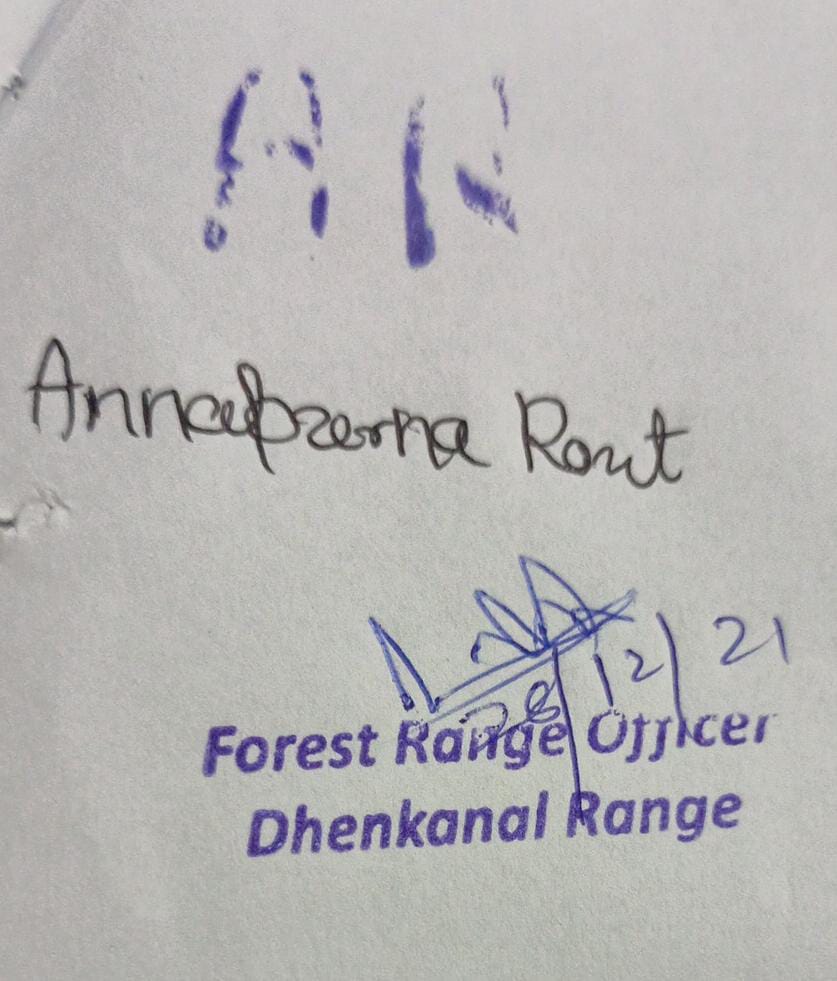 Annapurna Rout
28/12/21
Forest Range Officer
Dhenkanal Range